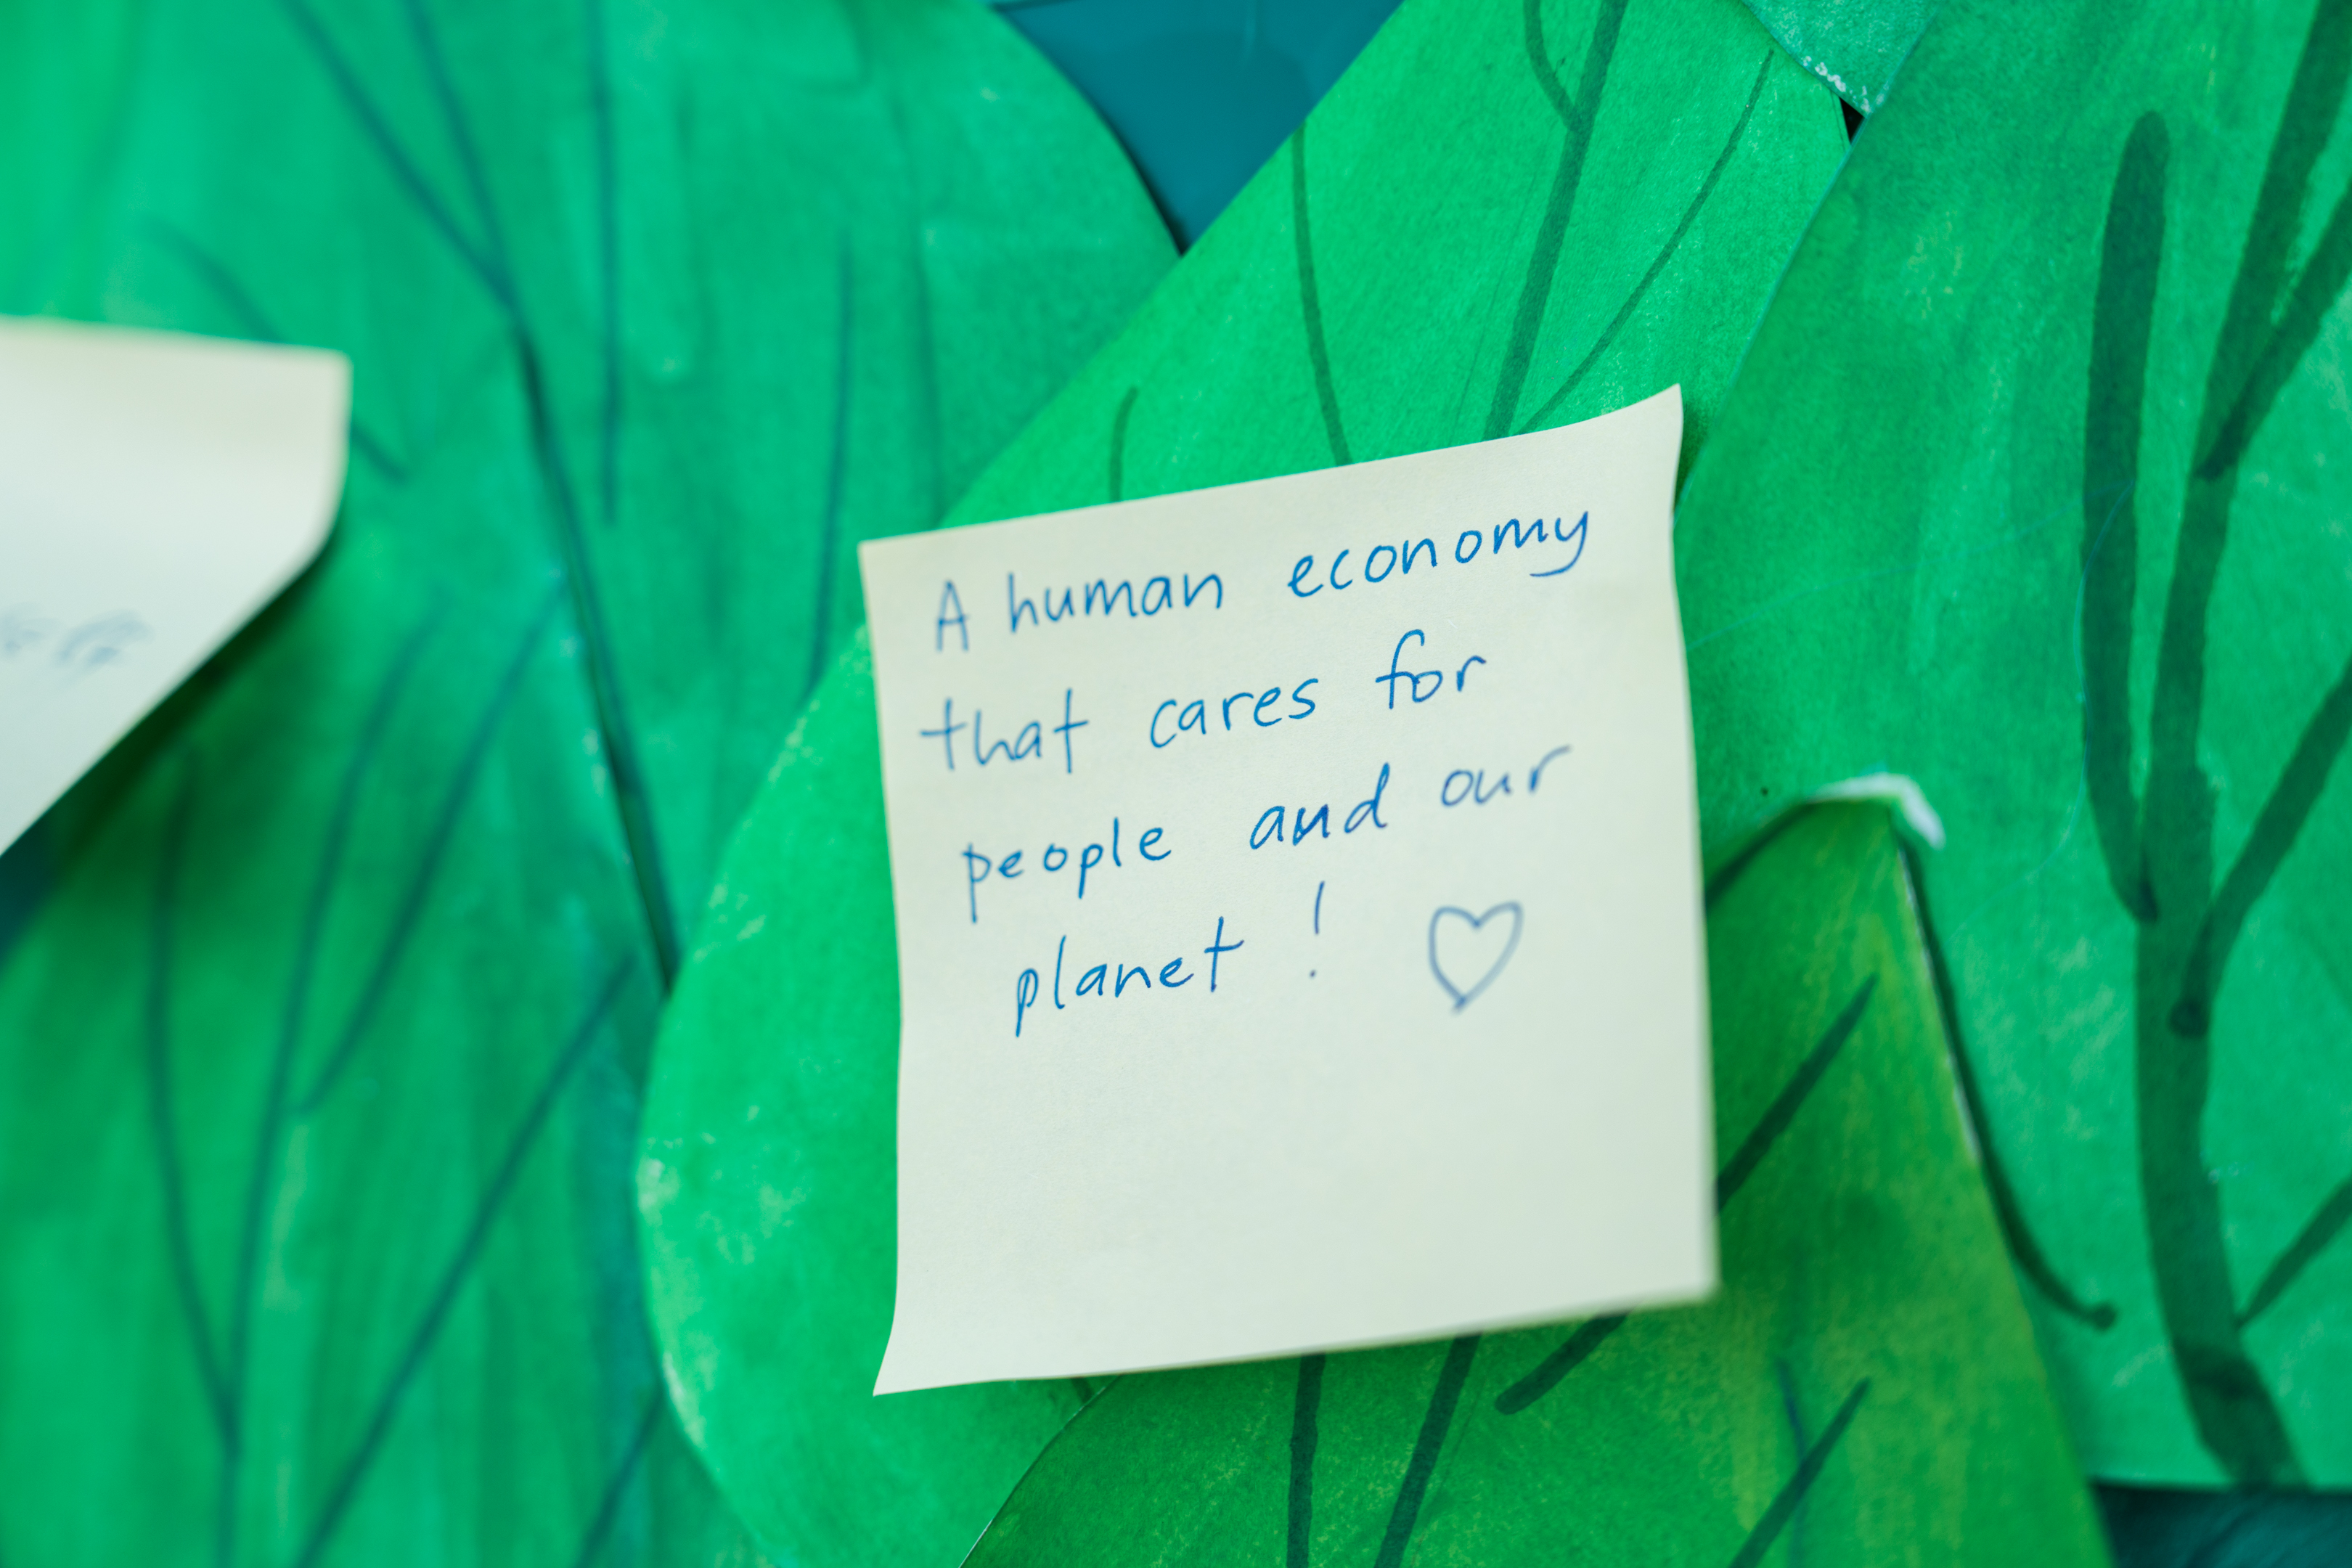 A human economy
that cares for
people and our
planet ! ♡